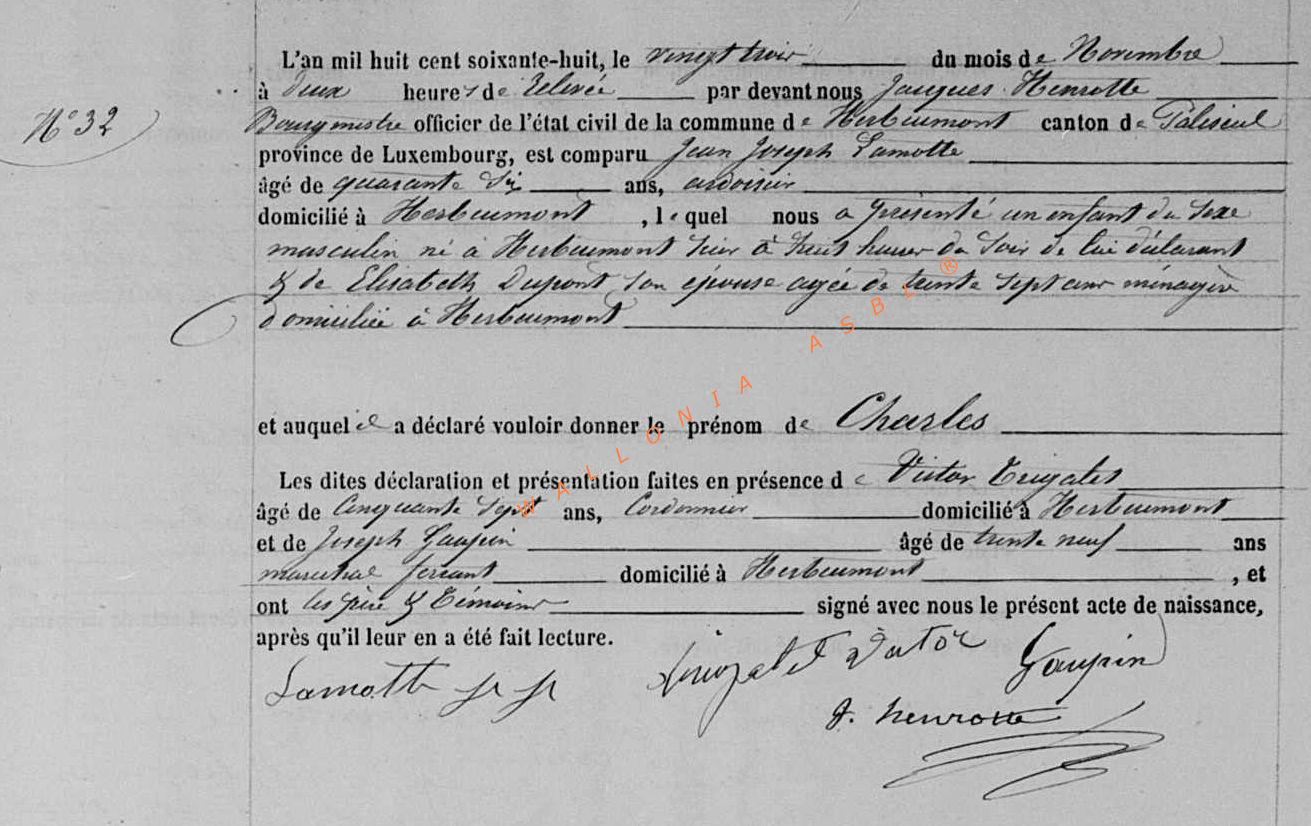 N° 32
L'an mil huit cent soixante-huit, le vingt trois du mois de Novembre
à deux heures de relevée par devant nous Jacques Henrotte
Bourgmestre officier de l'état civil de la commune de Herbeumont canton de Paliseul
province de Luxembourg, est comparu Jean Joseph Lamotte
âgé de quarante six ans, ardoisier
domicilié à Herbeumont, lequel nous a présenté un enfant du sexe
masculin né à Herbeumont hier à huit heures du soir de lui déclarant
& de Elisabeth Dupont son épouse agée de trente sept ans ménagère
domiciliée à Herbeumont
et auquel il a déclaré vouloir donner le prénom de Charles
Les dites déclaration et présentation faites en présence de Victor
âgé de Cinquante sept ans, Cordonnier domicilié à Herbeumont
et de Joseph Gaupin âgé de trente neuf ans
marechal ferrant domicilié à Herbeumont, et
ont les père & témoins signé avec nous le présent acte de naissance,
après qu'il leur en a été fait lecture.
Lamotte J J Victor Gaupin
J. Henrotte
WALLONIA ASBL ®